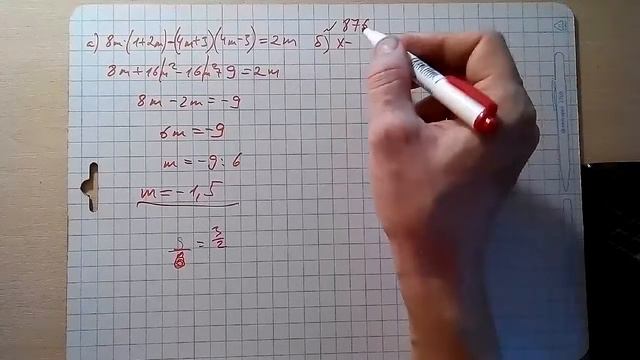 а) 8m·(1+2m)-(4m+3)(4m-3)=2m
8m+16m²-16m²+9=2m
8m-2m=-9
6m=-9
m=-9:6
m=-1,5
9/6=3/2
√ 876
б) x-